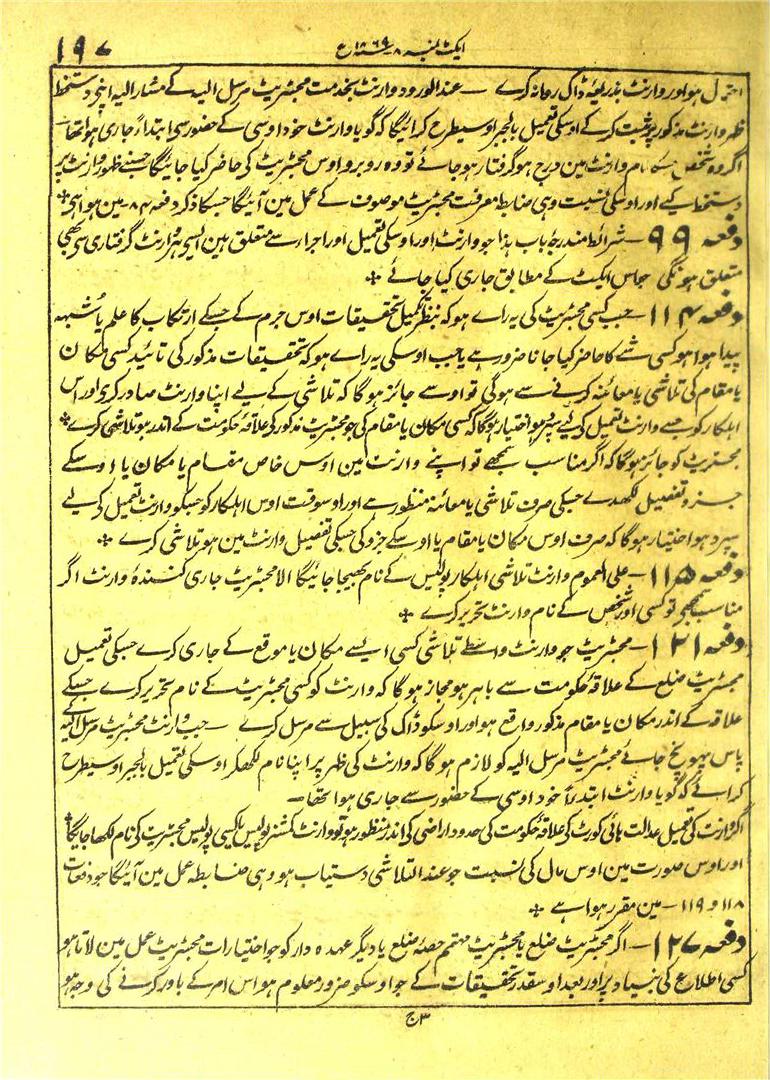 ایکٹ نمبر ۸ ۱۸۶۹ع
۱۹۷
احتمال ہو اور وارنٹ بذریعۂ ڈاک روانہ کرے – عندالورود وارنٹ بخدمت مجسٹریٹ مرسل الیہ کے مشارالیہ اپنی دستخط
ظہر وارنٹ مذکور پر ثبت کرکے اوسکی تعمیل بالجبر اوسیطرح کرائیگا کہ گویا وارنٹ خود اوسی کے حضور سی ابتداءً جاری ہوا تھا
اگر وہ شخص جسکا نام وارنٹ مین درج ہو گرفتار ہو جائے تو وہ روبرو اوس مجسٹریٹ کی حاضر کیا جائیگا جسنے ظہر وارنٹ پر
دستخط کیے اور اوسکی نسبت وہی ضابطہ معرفت مجسٹریٹ موصوف کے عمل مین آئیگا جسکا ذکر دفعہ ۸۴ مین ہوا ہی *
دفعہ ۹۹ – شرائط مندرجۂ باب ہذا جو وارنٹ اور اوسکی تعمیل اور اجراء سے متعلق ہین ایسی ہر وارنٹ گرفتاری سی بھی
متعلق ہونگی جو اس ایکٹ کے مطابق جاری کیا جائے *
دفعہ ۱۱۴ – جب کسی مجسٹریٹ کی یہ راے ہو کہ بنظر تکمیل تحقیقات اوس جرم کے جسکے ارتکاب کا علم یا شبہہ
پیدا ہوا ہو کسی شے کا حاضر کیا جانا ضرور ہے یا جب اوسکی یہ راے ہو کہ تحقیقات مذکور کی تائید کسی مکان
یا مقام کی تلاشی یا معائنہ کرنے سے ہوگی تو اوسے جائز ہوگا کہ تلاشی کے لیے اپنا وارنٹ صادر کری اور اس
اہلکار کو جسے وارنٹ تعمیل کی لیے سپرد ہو اختیار ہوگا کہ کسی مکان یا مقام کی جو مجسٹریٹ مذکور کی علاقۂ حکومت کے اندر ہو تلاشی کرے *
مجسٹریٹ کو جائز ہوگا کہ اگر مناسب سمجھے تو اپنے وارنٹ مین اوس خاص مقام یا مکان یا اوسکے
جزو کی تفصیل لکھدے جسکی صرف تلاشی یا معائنہ منظور ہے اور اوسوقت اوس اہلکار کو جسکو وارنٹ تعمیل کی لیے
سپرد ہوا اختیار ہوگا کہ صرف اوس مکان یا مقام یا اوسکے جزو کی جسکی تفصیل وارنٹ مین ہو تلاشی کرے *
دفعہ ۱۱۵ – علی العموم وارنٹ تلاشی اہلکار پولیس کے نام بھیجا جائیگا الا مجسٹریٹ جاری کنندۂ وارنٹ اگر
مناسب سمجھی تو کسی اور شخص کے نام وارنٹ تحریر کرے *
دفعہ ۱۲۱ – مجسٹریٹ جو وارنٹ واسطے تلاشی کسی ایسے مکان یا موقع کے جاری کرے جسکی تعمیل
مجسٹریٹ ضلع کے علاقۂ حکومت سے باہر ہو مجاز ہوگا کہ وارنٹ کو کسی مجسٹریٹ کے نام تحریر کرے جسکے
علاقہ کے اندر مکان یا مقام مذکور واقع ہو اور اوسکو ڈاک کی سبیل سے مرسل کرے – جب وارنٹ مجسٹریٹ مرسل الیہ کے
پاس پہونچ جائے مجسٹریٹ مرسل الیہ کو لازم ہوگا کہ وارنٹ کی ظہر پر اپنا نام لکھکر اوسکی تعمیل بالجبر اوسیطرح
کرائے کہ گویا وارنٹ ابتداءً خود اوسی کے حضور سے جاری ہوا تھا –
اگر وارنٹ کی تعمیل عدالت ہائی کورٹ کی علاقۂ حکومت کی حدود اراضی کی اندر منظور ہو تو وارنٹ کمشنر پولیس یا کسی پولیس مجسٹریٹ کی نام لکھا جائیگا *
اور اوس صورت مین اوس مال کی نسبت جو عندالتلاشی دستیاب ہو وہی ضابطہ عمل مین آئیگا جو دفعات
۱۱۸ و ۱۱۹ – مین مقرر ہوا ہے *
دفعہ ۱۲۷ – اگر مجسٹریٹ ضلع یا مجسٹریٹ مہتمم حصۂ ضلع یا دیگر عہدہ دار کو جو اختیارات مجسٹریٹ عمل مین لاتا ہو
کسی اطلاع کی بنیاد پر اور بعد اوسقدر تحقیقات کے جو اوسکو ضرور معلوم ہو اس امر کے باور کرنے کی وجہ ہو
ج۳